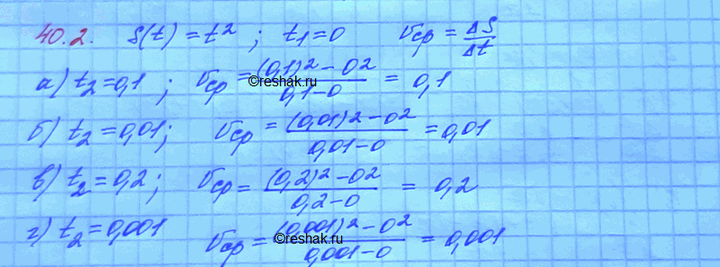 40.2. S(t) = t²; t₁=0 𝑣ср = ΔS/Δt
а) t₂=0,1; 𝑣ср = ((0,1)²-0²)/(0,1-0) = 0,1
©reshak.ru
б) t₂=0,01; 𝑣ср = ((0,01)²-0²)/(0,01-0) = 0,01
в) t₂=0,2; 𝑣ср = ((0,2)²-0²)/(0,2-0) = 0,2
г) t₂=0,001 𝑣ср = ((0,001)²-0²)/(0,001-0) = 0,001
©reshak.ru